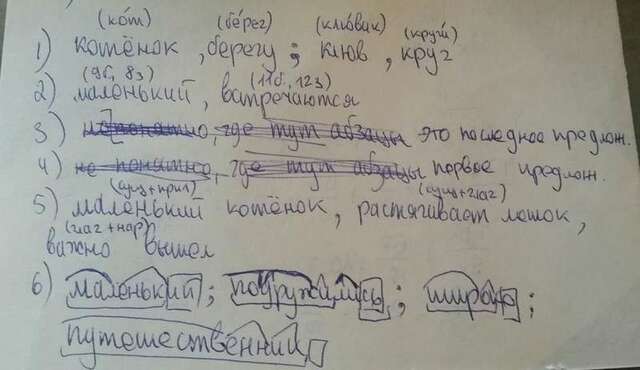 (кот) (берег) (клювик) (круги)
1) котёнок, берегу; клюв, круг
(9б, 8з) (11б, 12з)
2) маленький, встречаются
3) не понятно, где тут абзацы это последнее предлож.
4) не понятно, где тут абзацы первое предлож.
(сущ+прил) (сущ+глаг)
5) маленький котёнок, растягивает мешок,
(глаг+нар)
важно вышел
6) маленький; подружились;
путешественник